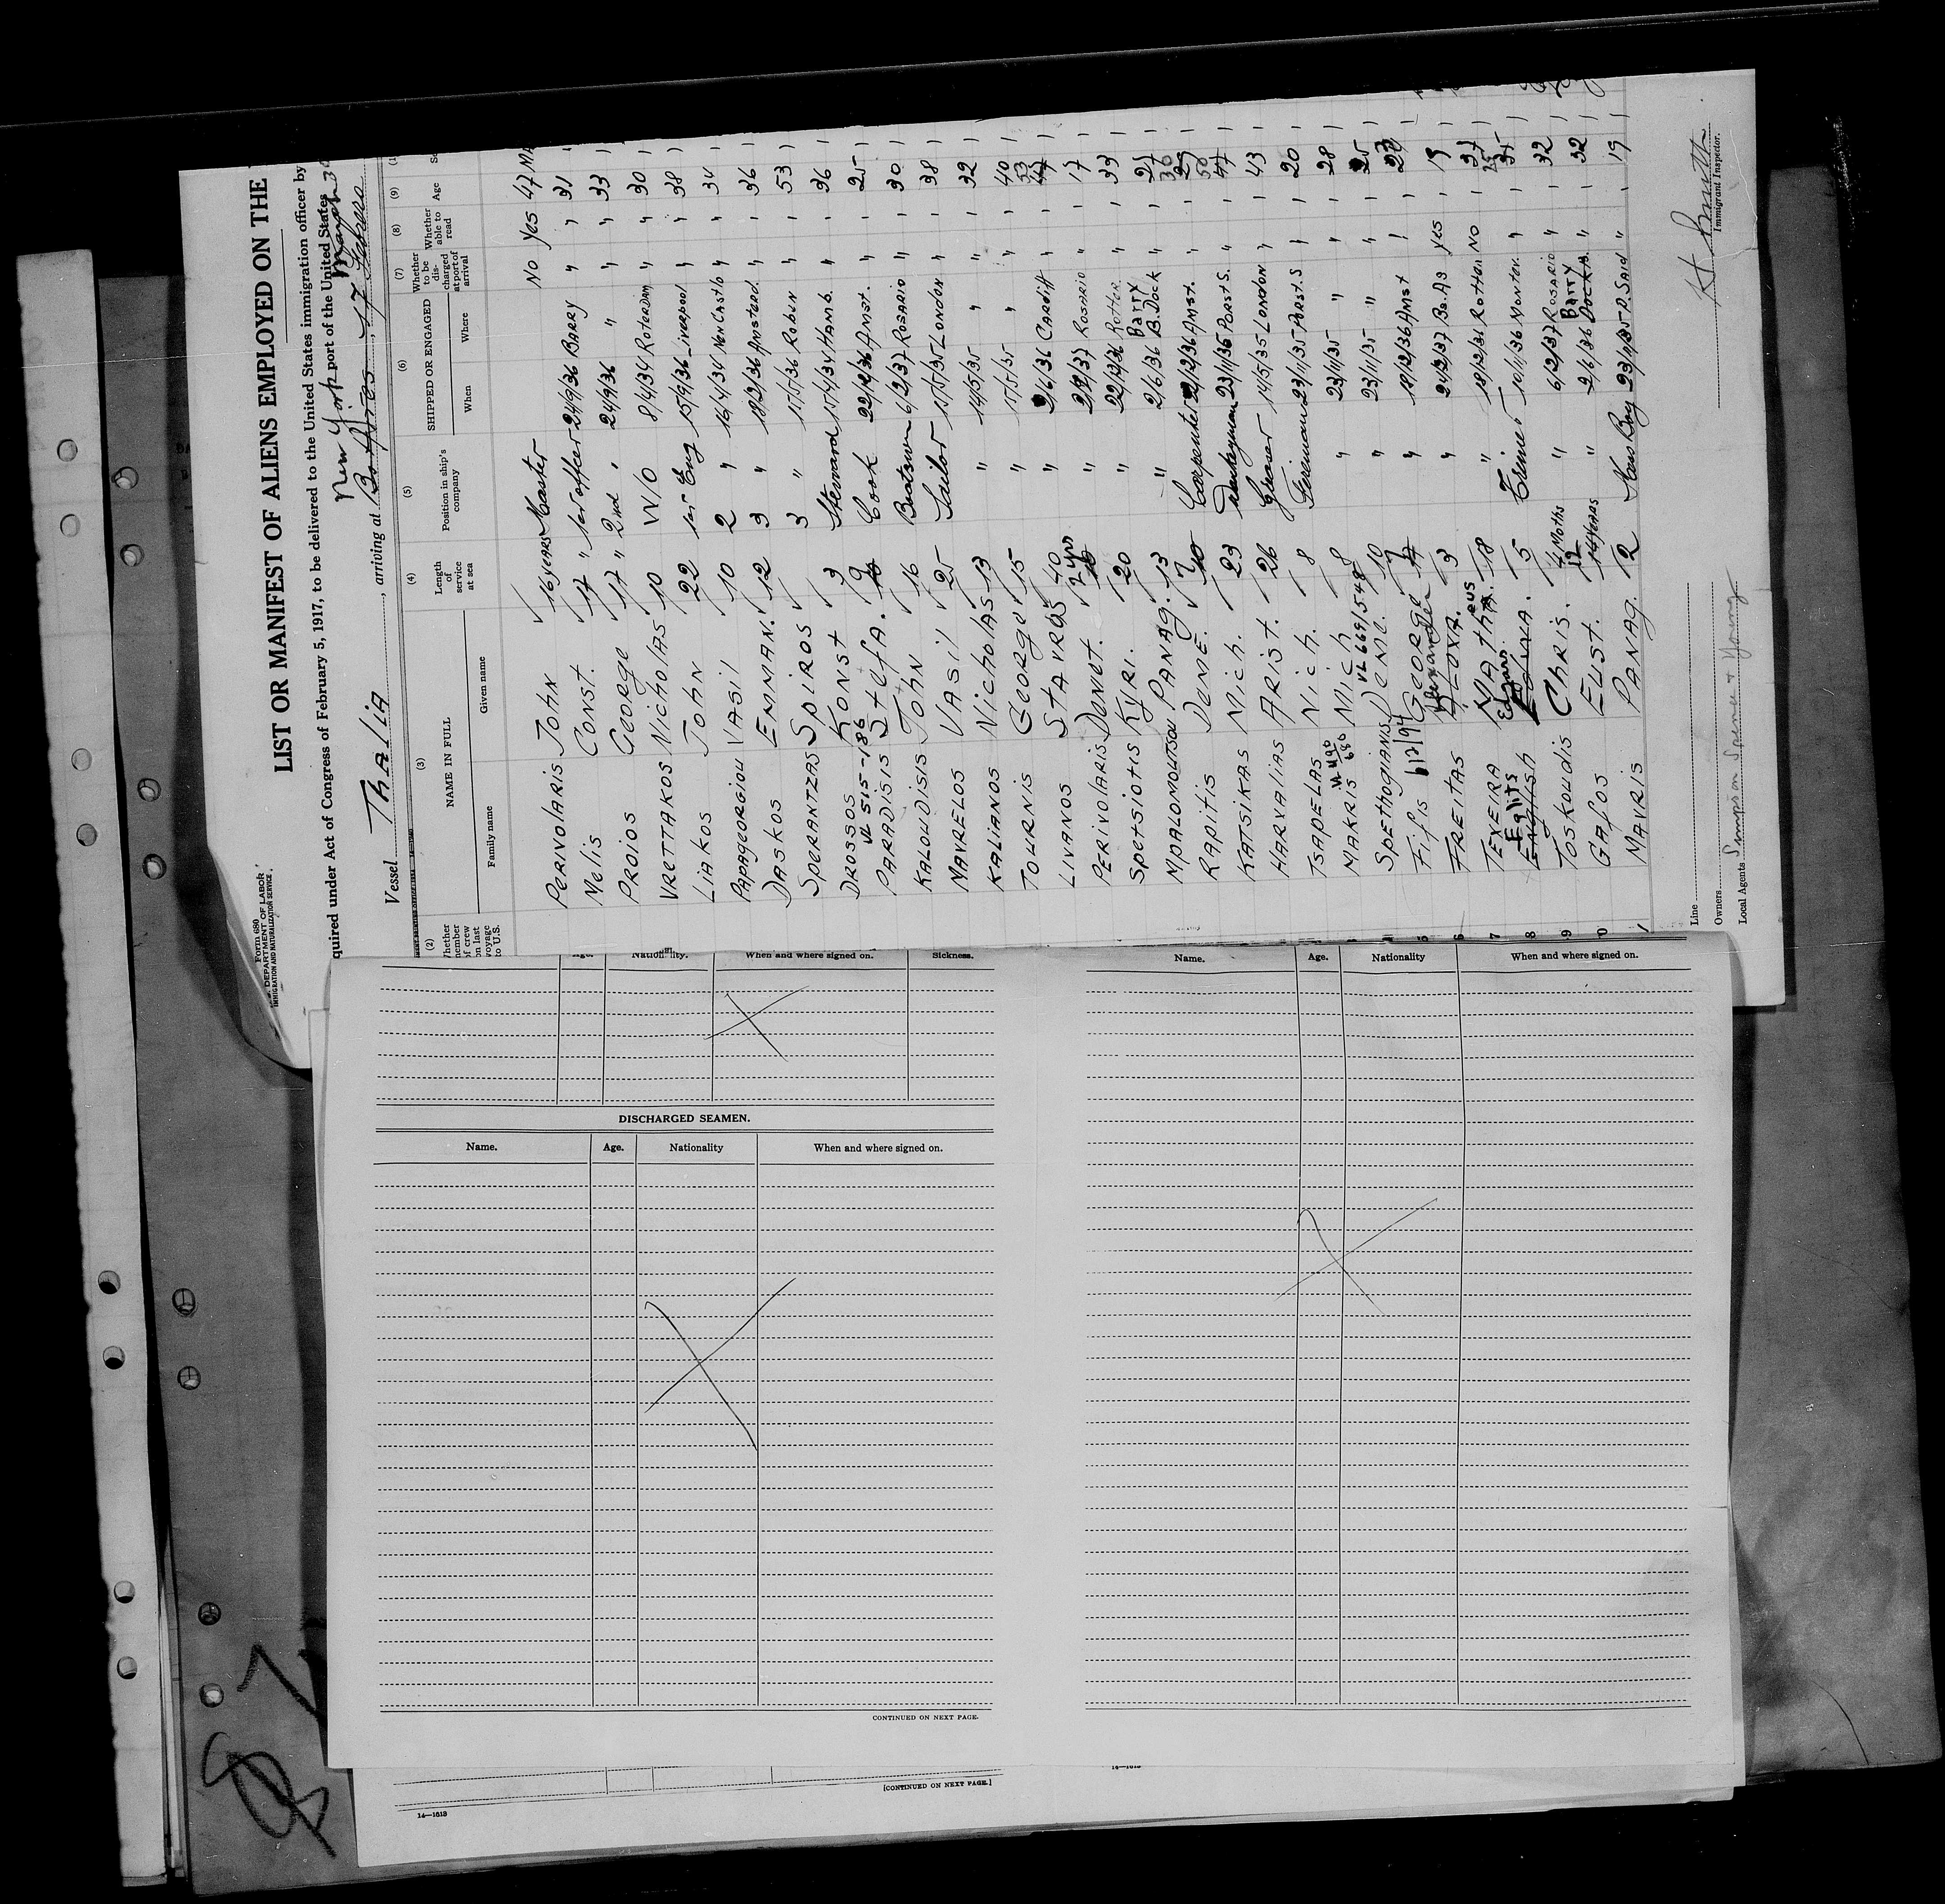 Form 680
U.S. DEPARTMENT OF LABOR
IMMIGRATION AND NATURALIZATION SERVICE
LIST OR MANIFEST OF ALIENS EMPLOYED ON THE
quired under Act of Congress of February 5, 1917, to be delivered to the United States immigration officer by
port of the United States
New York
Vessel Thalia, arriving at
(2) (3) (4) (5) (6) (7) (8) (9)
NAME IN FULL
SHIPPED OR ENGAGED
Whether member of crew on last voyage to U.S. Family name Given name Length of service at sea Position in ship's company When Where Whether to be discharged at port of arrival Whether able to read Age
PERIVOLARIS JOHN 16 YEARS Master No Yes 47
Melis CONST. 17 " 1st officer 24/9/36 BARRY " " 31
PROIOS George 17 " 2nd " 24/9/36 " " " 33
VRETTAKOS NicholAS 10 W/O 8/4/34 ROTERDAM " " 30
LIAKOS JOHN 22 1st Eng 15/9/36 Liverpool " " 38
PAPAGEORGIOU VASIL 10 2 " 16/4/34 NewCastle " " 34
DASKOS EMMAN. 12 3 " 18/2/36 Amsterd. " " 36
SPERANTZAS SPIROS 3 " 15/5/36 " " 53
DROSSOS KONST 3 Steward 15/4/34 HAMb. " " 36
VL 515-186
PARADISIS StefA. 9 Cook AMST. " " 25
KALOUDISIS JOHN 16 Boatswn 6/2/37 ROSARIO " " 30
MAVRELOS VASIL 25 Sailor 15/5/35 London " " 38
KALIANOS NicholAS 13 " 14/5/35 " " " 32
TOURNIS George 15 " 15/5/35 " " " 40
LIVANOS STAVROS 40 " 2/6/36 CARDiff " "
PERIVOLARIS Demet. 2 yrs " ROSARIO " " 17
Spetsiotis KYRI. 20 " 22/12/36 Rotter. " " 33
Barry
MPALOMOUTSOU PANAG. 13 " 2/6/36 B. Dock " "
RAPITIS DEME. 7 Carpenter 22/12/36 AMST. " "
KATSIKAS Nich. 23 Donkeyman 23/11/35 PORST S. " "
HARVALIAS ARIST. 26 Greaser 14/5/35 London " " 43
TSAPELAS Nich. 8 Fireman 23/11/35 PORST. S " " 20
MAKRIS Mich 8 " 23/11/35 " " " 28
VL 669/548
Spethogianis Deme. 10 " 23/11/35 " " " 25
Fifis George " 18/12/36 AMST " "
612/94
Alexander
FREITAS 3 " 24/2/37 Bo. AS Yes 19
TEXEIRA MATheus 18 " 18/12/36 Rotter No
Eglits Edgars
English 5 Trimer 10/11/36 MONTEV. "
TOSKOUDIS ChRIS. 4 Moths " 6/2/37 ROSARIO " 32
Barry
GAfos EUST. 14 YEARS " 2/6/36 DOCKS. " 32
MAVRIS PANAG. 2 Mess Boy 23/11/35 P. SAID " 19
Line
Owners
Local Agents Simpson Spence & Young
Immigrant Inspector.
Age. Nationality. When and where signed on. Sickness.
DISCHARGED SEAMEN.
Name. Age. Nationality When and where signed on.
CONTINUED ON NEXT PAGE.
[CONTINUED ON NEXT PAGE.]
Name. Age. Nationality When and where signed on.